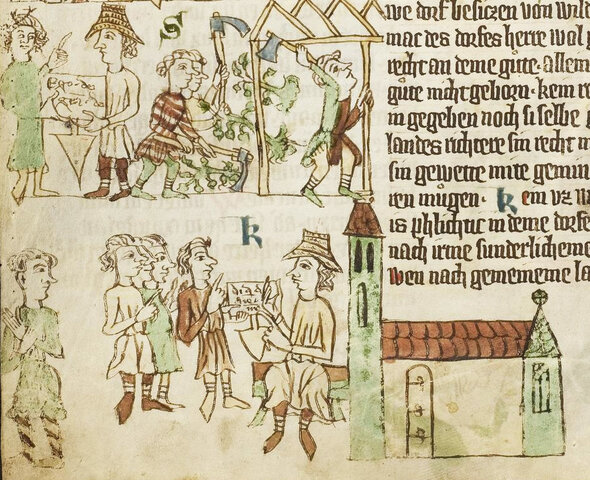 S
we dorf besiczen von wild
mac des dorfes herre wol
recht an deme gute. allem
gute nicht geborn. kein re
in gegeben noch si selbe
landes richtere sin recht m
sin gewette mite gemin
ren mugen. kein uz w
is phlichtic in deme dorfe
nach irme sunderlicheme
wen nach gemeineme la
k